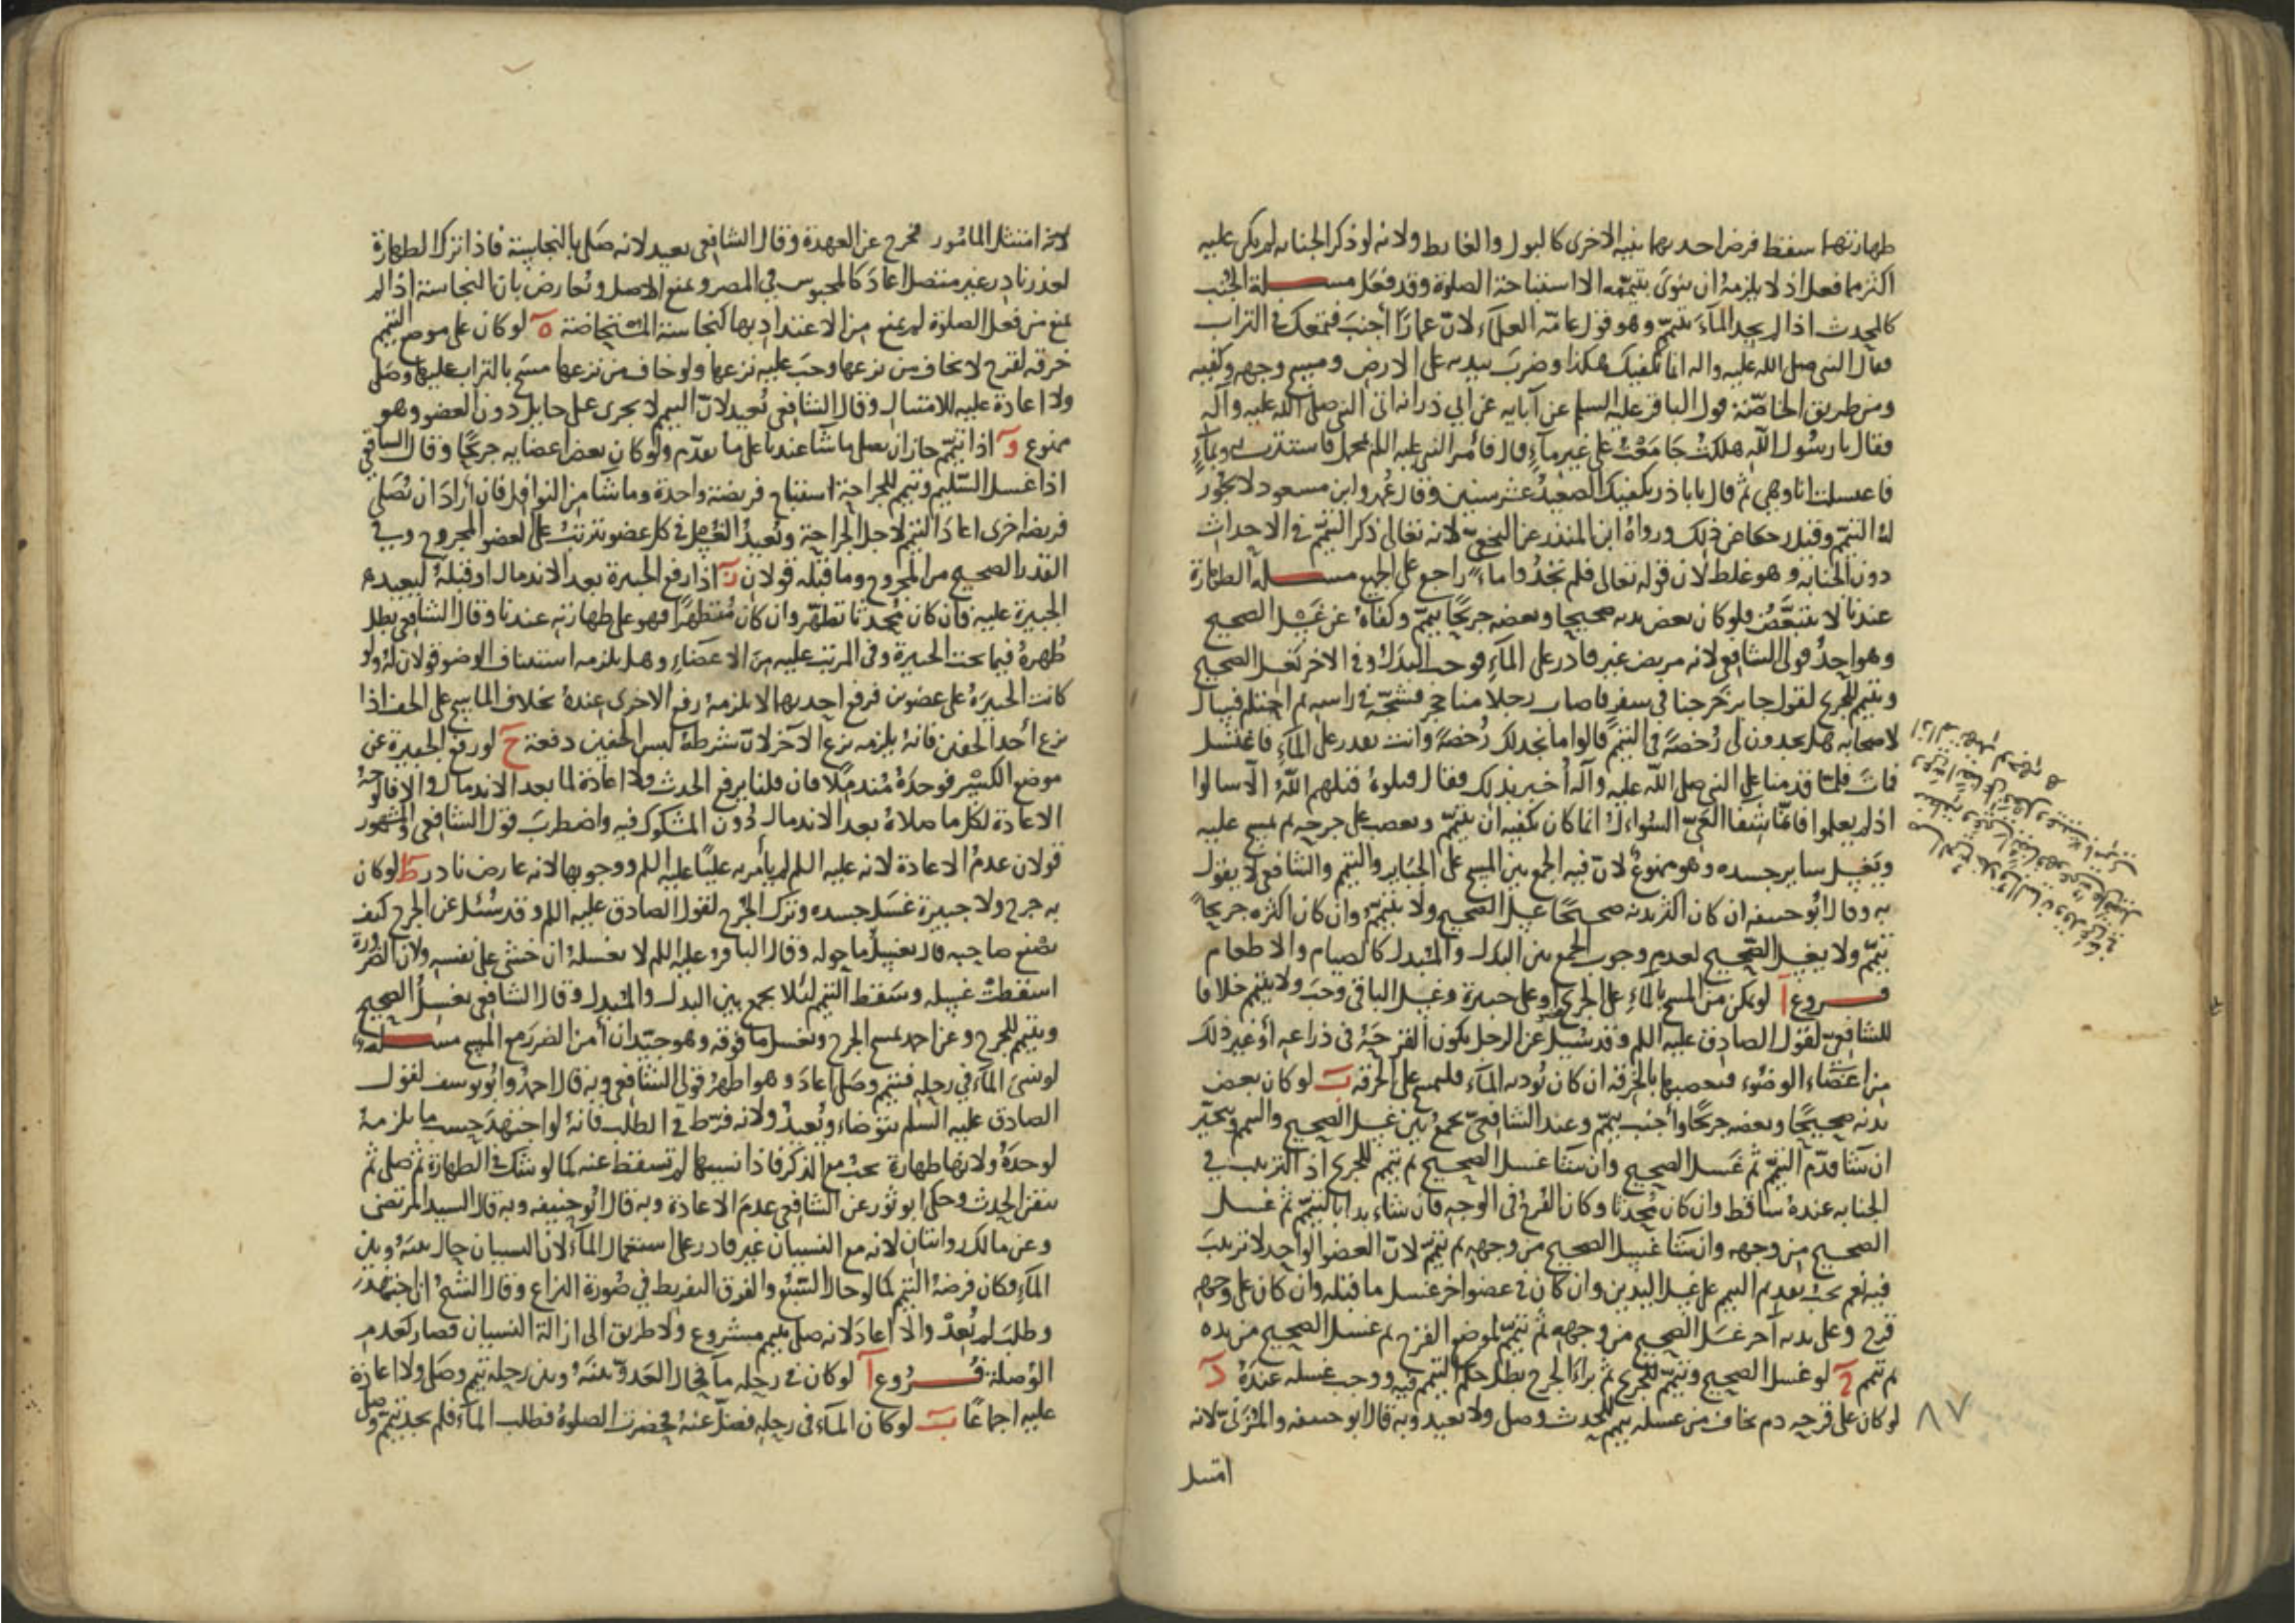 طهارتهما سقط فرض احديهما بنية الاخرى كالبول والغايط ولانه لو ذكر الجنابه لم يكن عليه
اكثر مما فعل اذ لا يلزمه ان ينوى بتيممه الا استباحة الصلوة وقد فعل مسـلة الجنب
كالمحدث اذا لم يجد المآء تيمم وهو قول عامة العلمآء لان عمارا أجنب فتمعك في التراب
فقال النبي صلى الله عليه واله انما يكفيك هكذا وضرب بيديه على الارض ومسح وجهه وكفيه
ومن طريق الخاصة قول الباقر عليه السلم عن آبايه عن ابي ذر انه اتى النبي صلى الله عليه وآله
فقال يا رسول الله هلكت جامعت على غير مآء قال فأمر النبي عليه السلم بمحمل فاستترت به وبمآء
فاغتسلت انا وهي ثم قال يا باذر يكفيك الصعيد عشر سنين وقال عمر وابن مسعود لا يجوز
له التيمم وقيل رجعا عن ذلك ورواه ابن المنذر عن النخعي لانه تعالى ذكر التيمم في الاحداث
دون الجنابه وهو غلط لان قوله تعالى فلم تجدوا ماء راجع على الجميع مسـلة الطهارة
عندنا لا تتبعض فلو كان بعض بدنه صحيحا وبعضه جريحا تيمم وكفاه عن غسل الصحيح
وهو احد قولى الشافعي لانه مريض غير قادر على المآء فوجب البدل وفي الاخر يغسل الصحيح
ويتيمم للجريح لقول جابر خرجنا في سفر فاصاب رجلا منا حجر فشجه في راسه ثم احتلم فسال
لاصحابه هل تجدون لى رخصة في التيمم قالوا ما نجد لك رخصة وانت تقدر على المآء فاغتسل
فمات فلما قدمنا على النبي صلى الله عليه وآله أخبر بذلك فقال قتلوه قتلهم الله الا سالوا
اذ لم يعلموا فانما شفا العي السؤال انما كان يكفيه ان يتيمم ويعصب على جرحه ثم يمسح عليه
ويغسل ساير جسده وهو ممنوع لان فيه الجمع بين المسح على الجباير والتيمم والشافعي لا يقول
به وقال ابو حنيفه ان كان اكثر بدنه صحيحا غسل الصحيح ولا يتيمم وان كان اكثره جريحا
تيمم ولا يغسل الصحيح لعدم وجوب الجمع بين البدل والمبدل كالصيام والاطعام
فـروع آ لو تمكن من المسح بالمآء على الجرح او على جبيرة وغسل الباقي وجب ولا يتيمم خلافا
للشافعي لقول الصادق عليه السلم وقد سئل عن الرجل يكون القرحة في ذراعه أو غير ذلك
من اعضاء الوضوء فيعصبها بالخرقه ان كان يوديه المآء فليمسح على الخرقه ب لو كان بعض
بدنه صحيحا وبعضه جريحا وأجنب تيمم وعند الشافعي يجمع بين غسل الصحيح والتيمم ويتخير
ان شآ قدم التيمم ثم غسل الصحيح وان شآ غسل الصحيح ثم تيمم للجريح اذ الترتيب في
الجنابه عنده ساقط وان كان محدثا وكان القرح في الوجه فان شاء بدا بالتيمم ثم غسل
الصحيح من وجهه وان شآ غسل الصحيح من وجهه ثم تيمم لان العضو الواحد لا ترتيب
فيه نعم يجب تقديم التيمم على غسل اليدين وان كان في عضو اخر غسل ما قبله وان كان على وجهه
قرح وعلى يديه آخر غسل الصحيح من وجهه ثم تيمم لموضع القرح ثم غسل الصحيح من يده
ثم تيمم ج لو غسل الصحيح وتيمم للجريح ثم براء الجرح بطل حكم التيمم فيه ووجب غسله عنده د
لو كان على قرحه دم يخاف من غسله تيمم للحدث وصلى ولا يعيد وبه قال ابو حنيفه والمزني لانه
٨٧
امتثل
لانه امتثل المأمور فخرج عن العهدة وقال الشافعي يعيد لانه صلى بالنجاسة فاذا ترك الطهارة
لعذر نادر غير متصل اعاد كالمحبوس في المصر ونمنع الاصل ونعارض بان النجاسة اذا لم
تمنع من فعل الصلوة لم تمنع من الاعتداد بها كنجاسة المستحاضة ه لو كان على موضع التيمم
خرقه لقرح لا يخاف من نزعها وجب عليه نزعها ولو خاف من نزعها مسح بالتراب عليها وصلى
ولا اعادة عليه للامتثال وقال الشافعي يعيد لان التيمم لا يجزى على حايل دون العضو وهو
ممنوع و اذا تيمم جاز ان يصلى ما شآ عندنا على ما تقدم ولو كان بعض اعضايه جريحا وقال الشافعي
اذا غسل السليم وتيمم للجراحة استباح فريضة واحدة وما شآ من النوافل فان أراد ان يصلى
فريضه اخرى اعاد التيمم لاجل الجراحة ويعيد الغسل في كل عضو يترتب على العضو المجروح وفي
القدر الصحيح من المجروح وما قبله قولان ز اذا رفع الجبيرة بعد الاندمال او قبله ليعيد
الجبيرة عليه فان كان محدثا تطهر وان كان متطهرا فهو على طهارته عندنا وقال الشافعي بطل
طهره فيما تحت الجبيرة وفي المرتب عليه من الاعضاء وهل يلزمه استيناف الوضو قولان له ولو
كانت الجبيرة على عضوين فرفع احديهما لا يلزمه رفع الاخرى عنده بخلاف الماسح على الخف اذا
نزع أحد الخفين فانه يلزمه نزع الآخر لان شرطه لبس الخفين دفعة ح لو رفع الجبيرة عن
موضع الكسر فوجده مندملا فان قلنا يرفع الحدث فلا اعادة لما بعد الاندمال والا فالوجه
الاعادة لكل ما صلاه بعد الاندمال دون المشكوك فيه واضطرب قول الشافعي والمشهور
قولان عدم الاعادة لانه عليه السلم لم يأمر به عليا عليه السلم ووجوبها لانه عارض نادر ط لو كان
به جرح ولا جبيرة غسل جسده وترك الجرح لقول الصادق عليه السلم وقد سئل عن الجرح كيف
يصنع صاحبه قال يغسل ما حوله وقال الباقر عليه السلم لا يغسله ان خشى على نفسه ولان الضرورة
اسقطت غسله وسقط التيمم لئلا يجمع بين البدل والمبدل وقال الشافعي يغسل الصحيح
ويتيمم للجرح وعن احمد يمسح الجرح ويغسل ما فوقه وهو جيد ان أمن الضرر مع المسح مسـلة
لو نسى المآء في رحله فتيمم وصلى اعاد وهو اظهر قولى الشافعي وبه قال احمد وابو يوسف لقول
الصادق عليه السلم يتوضاء ويعيد ولانه فرط في الطلب فانه لو اجتهد حسب ما يلزمه
لوجده ولانها طهارة تجب مع الذكر فاذا نسيها لم تسقط عنه كما لو شك في الطهارة ثم صلى ثم
تيقن الحدث وحكى ابو ثور عن الشافعي عدم الاعادة وبه قال ابو حنيفه وبه قال السيد المرتضى
وعن مالك روايتان لانه مع النسيان غير قادر على استعمال المآء لان النسيان حال بينه وبين
المآء فكان فرضه التيمم كما لو حال السبع والفرق التفريط في صورة النزاع وقال الشيخ ان اجتهد
وطلب لم يعد والا اعاد لانه صلى بتيمم مشروع ولا طريق الى ازالة النسيان فصار كعدم
الوصلة فـروع آ لو كان في رحله مآ فحال العدو بينه وبين رحله تيمم وصلى ولا اعادة
عليه اجماعا ب لو كان المآء في رحله فضل عنه فحضرت الصلوة فطلب المآء فلم يجد تيمم وصلى